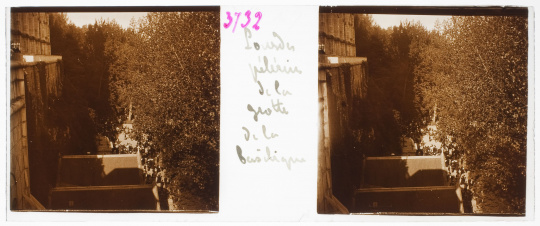 3732
Lourdes
pélerins
de la
grotte
de la
basilique